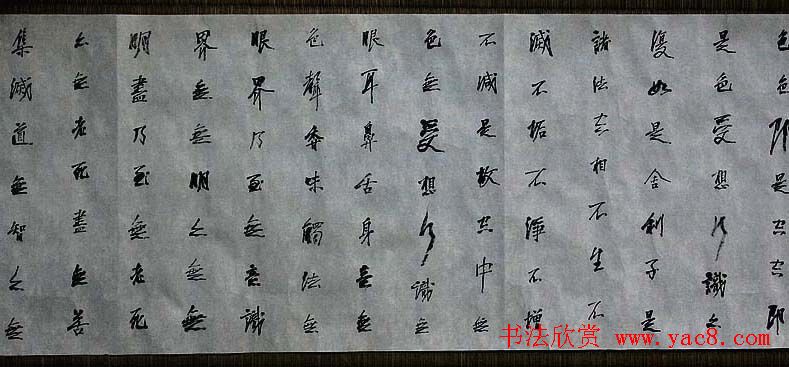 色色即是空空即
是色受想行識亦
復如是舍利子是
諸法空相不生不
滅不垢不淨不增
不減是故空中無
色無受想行識無
眼耳鼻舌身意無
色聲香味觸法無
眼界乃至無意識
界無無明亦無無
明盡乃至無老死
亦無老死盡無苦
集滅道無智亦無
书法欣赏
www.yac8.com